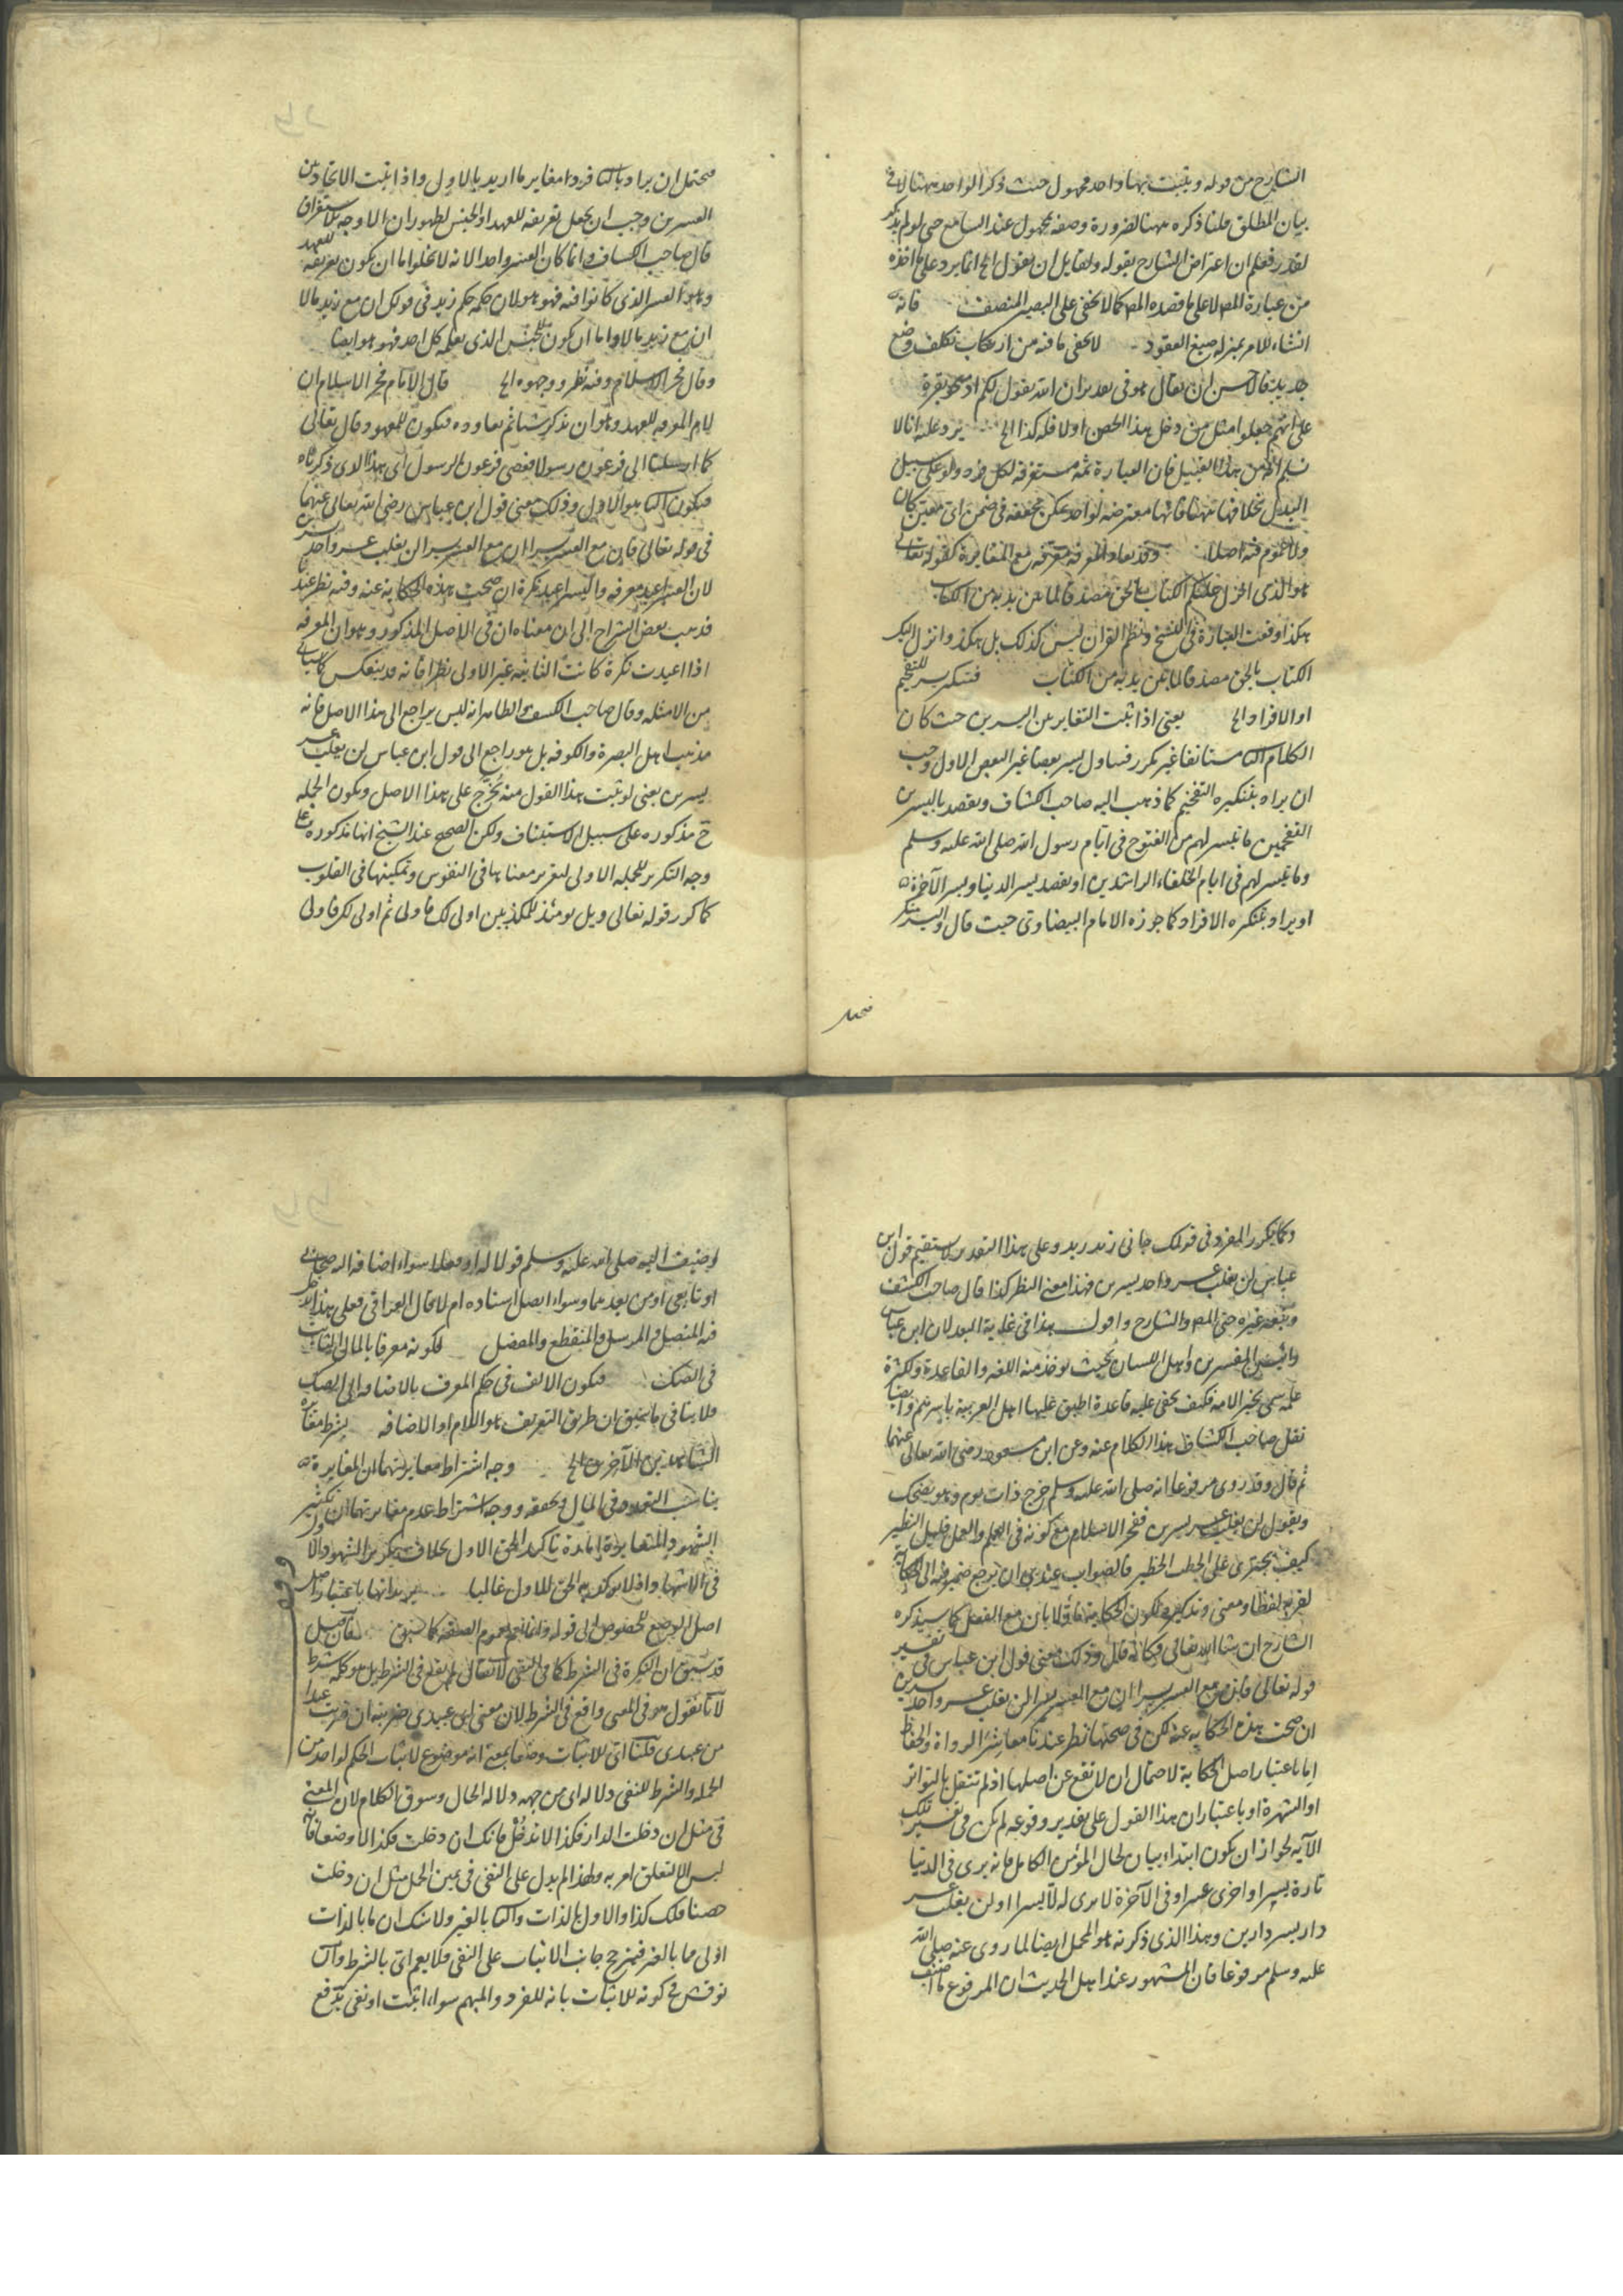 الشارح من قوله ويثبت بها واحد مجهول حيث ذكر الواحد ههنا لا في
بيان المطلق قلنا ذكره ههنا لضرورة وصفه مجهول عند السامع حتى لو لم يذكر
لقدر فعلم ان اعتراض الشارح بقوله ولقايل ان يقول الخ انما يرد على ما اخذه
من عبارة المص لا على ما قصده المص كما لا يخفى على البصير المنصف فانه
انشاء للامر بمنزلة صيغ العقود لا يخفى ما فيه من ارتكاب تكلف وضع
جديد فالاحسن ان يقال هو في تقدير ان الله يقول لكم اذبحوا بقرة
على انهم جعلوا مثل من دخل هذا الحصن اولا فله كذا الخ يرد عليه انا لا
نسلم انه من هذا القبيل فان العبارة ثمه مستغرقة لكل فرد ولو على سبيل
البدل بخلافها ههنا فانها معترضة لواحد يمكن تحققه في ضمن اي معين كان
ولا عموم فيه اصلا وقد يعاد المعرفة معرفة مع المغايرة كقوله تعالى
هو الذي انزل عليكم الكتاب بالحق مصدقا لما بين يديه من الكتاب
هكذا وقعت العبارة في النسخ ونظم القران ليس كذلك بل هكذا وانزل اليك
الكتاب بالحق مصدقا لما بين يديه من الكتاب فتنكير يسر للتفخيم
او الافراد الخ يعني اذا ثبت التغاير بين اليسرين حيث كان
الكلام الثا مستانفا غير مكرر فتناول يسر بعضا غير البعض الاول وجب
ان يراد بتنكيره التفخيم كما ذهب اليه صاحب الكشاف ويقصد باليسرين
الفخمين ما تيسر لهم من الفتوح في ايام رسول الله صلى الله عليه وسلم
وما تيسر لهم في ايام الخلفاء الراشدين او يقصد يسر الدنيا ويسر الآخرة
او يراد بتنكيره الافراد كما جوزه الامام البيضاوي حيث قال واليسر منكر
فيحتمل
فيحتمل ان يراد بالثا فردا مغاير ما اريد بالاول واذا ثبت الاتحاد بين
العسرين وجب ان يجعل تعريفه للعهد او الجنس لظهور ان لا وجه للاستغراق
قال صاحب الكشاف وانما كان العسر واحدا لانه لا يخلوا اما ان يكون تعريفه للعهد
وهو العسر الذي كانوا فيه فهو هو لان حكمه حكم زيد في قولك ان مع زيد مالا
ان مع زيد مالا واما ان يكون للجنس الذي يعلمه كل احد فهو هو ايضا
وقال فخر الاسلام وفيه نظر ووجهوه الخ قال الامام فخر الاسلام ان
لام المعرفة للعهد وهو ان تذكر شيئا ثم تعاوده فيكون للمعهود قال تعالى
كما ارسلنا الى فرعون رسولا فعصى فرعون الرسول اى هذا الذي ذكرناه
فيكون الثا هو الاول وذلك معنى قول ابن عباس رضي الله تعالى عنهما
في قوله تعالى فان مع العسر يسرا ان مع العسر يسرا لن يغلب عسر واحد يسرين
لان العسر اعيد معرفة واليسر اعيد نكرة ان صحت هذه الحكاية عنه وفيه نظر عندنا
فذهب بعض الشراح الى ان معناه ان في الاصل المذكور وهو ان المعرفة
اذا اعيدت نكرة كانت الثانية غير الاولى نظرا فانه قد ينعكس كما سياتي
من الامثلة وقال صاحب الكشف والظاهر انه ليس يراجع الى هذا الاصل فانه
مذهب اهل البصرة والكوفة بل هو راجع الى قول ابن عباس لن يغلب عسر
يسرين يعني لو ثبت هذا القول منه يُخرَّج على هذا الاصل ويكون الجملة
ح مذكورة على سبيل الاستيناف ولكن الصحيح عند الشيخ انها مذكورة على
وجه التكرير للجملة الاولى لتقرير معناها في النفوس وتمكينها في القلوب
كما كرر قوله تعالى ويل يومئذ للمكذبين اولى لك فاولى ثم اولى لك فاولى
وكما يكرر المفرد في قولك جاني زيد زيد وعلى هذا التقدير لا يستقيم قول ابن
عباس لن يغلب عسر واحد يسرين فهذا معنى النظر كذا قال صاحب الكشف
وتبعه غيره حتى المص والشارح واقول هذا في غاية البعد لان ابن عباس
رئيس المفسرين واهل اللسان بحيث يوخذ منه اللغة والقاعدة ولكثرة
علمه سمي بحبر الامة فكيف يخفى عليه قاعدة اطبق عليها اهل العربية باسرهم وايضا
نقل صاحب الكشاف هذا الكلام عنه وعن ابن مسعود رضي الله تعالى عنهما
ثم قال وقد روى مرفوعا انه صلى الله عليه وسلم خرج ذات يوم وهو يضحك
ويقول لن يغلب عسر يسرين ففخر الاسلام مع كونه في العلم والعمل قليل النظير
كيف يجترئ على الخطب الخطير فالصواب عندي ان يرجع ضمير فيه الى الحكاية
لقربه لفظا ومعنى وتذكيره لكون الحكاية مأولا بان مع الفعل كما سيذكره
الشارح ان شا الله تعالى فكانه قال وذلك معنى قول ابن عباس في تفسير
قوله تعالى فان مع العسر يسرا ان مع العسر يسرا لن يغلب عسر واحد يسرين
ان صحت هذه الحكاية عنه لكن في صحتها نظر عندنا معاشر الرواة والحفاظ
اما باعتبار اصل الحكاية لاحتمال ان لا تقع عن اصلها اذ لم تنقل بالتواتر
او الشهرة او باعتبار ان هذا القول على تقدير وقوعه لم يكن في تفسير تلك
الآية لجواز ان يكون ابتداء بيان لحال المؤمن الكامل فانه يرى في الدنيا
تارة يسرا واخرى عسرا وفي الآخرة لا يرى له الا يسرا او لن يغلب عسر
دار يسر دارين وهذا الذي ذكرته هو المحمل ايضا لما روى عنه صلى الله
عليه وسلم مرفوعا فان المشهور عند اهل الحديث ان المرفوع ما اضيف
اضيف اليه صلى الله عليه وسلم قولا له او فعلا سواء اضافه اليه صحابي
او تابعي او من بعدهما وسواء اتصل اسناده ام لا قال العراقي فعلى هذا يدخل
فيه المتصل والمرسل والمنقطع والمعضل لكونه معرفا بالمال الثابت
في الصك فيكون الالف في حكم المعرف بالاضافة الى الصك
فلا ينافي ما سبق ان طريق التعريف هو اللام او الاضافة بشرط مغايرة
الشاهدين الآخرين الخ وجه اشتراط مغايرتهما ان المغايرة
يناسب التعدد في المال ويحققه ووجه اشتراط عدم مغايرتهما ان تكثير
الشهود والمتعايرة زيادة تاكيد الحق الاول بخلاف تكرير الشهود والا
في الاشهاد اذ لا يوكد به الحق للاول غالبا يريد انها باعتبار اصل
اصل الوضع للخصوص الى قوله وانما يعم لعموم الصفة كما سبق فان قيل
قد سبق ان النكرة في الشرط كما في النفي لا يقال لم يقع في الشرط بل هو كلمة شرط
لانا نقول هو في المعنى واقع في الشرط لان معنى اي عبيدي ضربته ان ضربت عبدا
من عبيدي قلنا اي للاثبات وضعا بمعنى انه موضوع لاثبات الحكم لواحد من
الجملة والشرط للنفي دلالة اى من جهة دلالة الحال وسوق الكلام لان المعنى
في مثل ان دخلت الدار فكذا لا تدخل فانك ان دخلت فكذا لا وضعا فانه
ليس الا لتعلق امر به ولهذا لم يدل على النفي في يمين الحمل مثل ان دخلت
حصنا فلك كذا والاول بالذات والثا بالغير ولا شك ان ما بالذات
اولى مما بالغير فيترجح جانب الاثبات على النفي فلا يعم اي بالشرط وان
نوقش في كونه للاثبات بانه للفرد والمبهم سواء اثبت او نفى يدفع